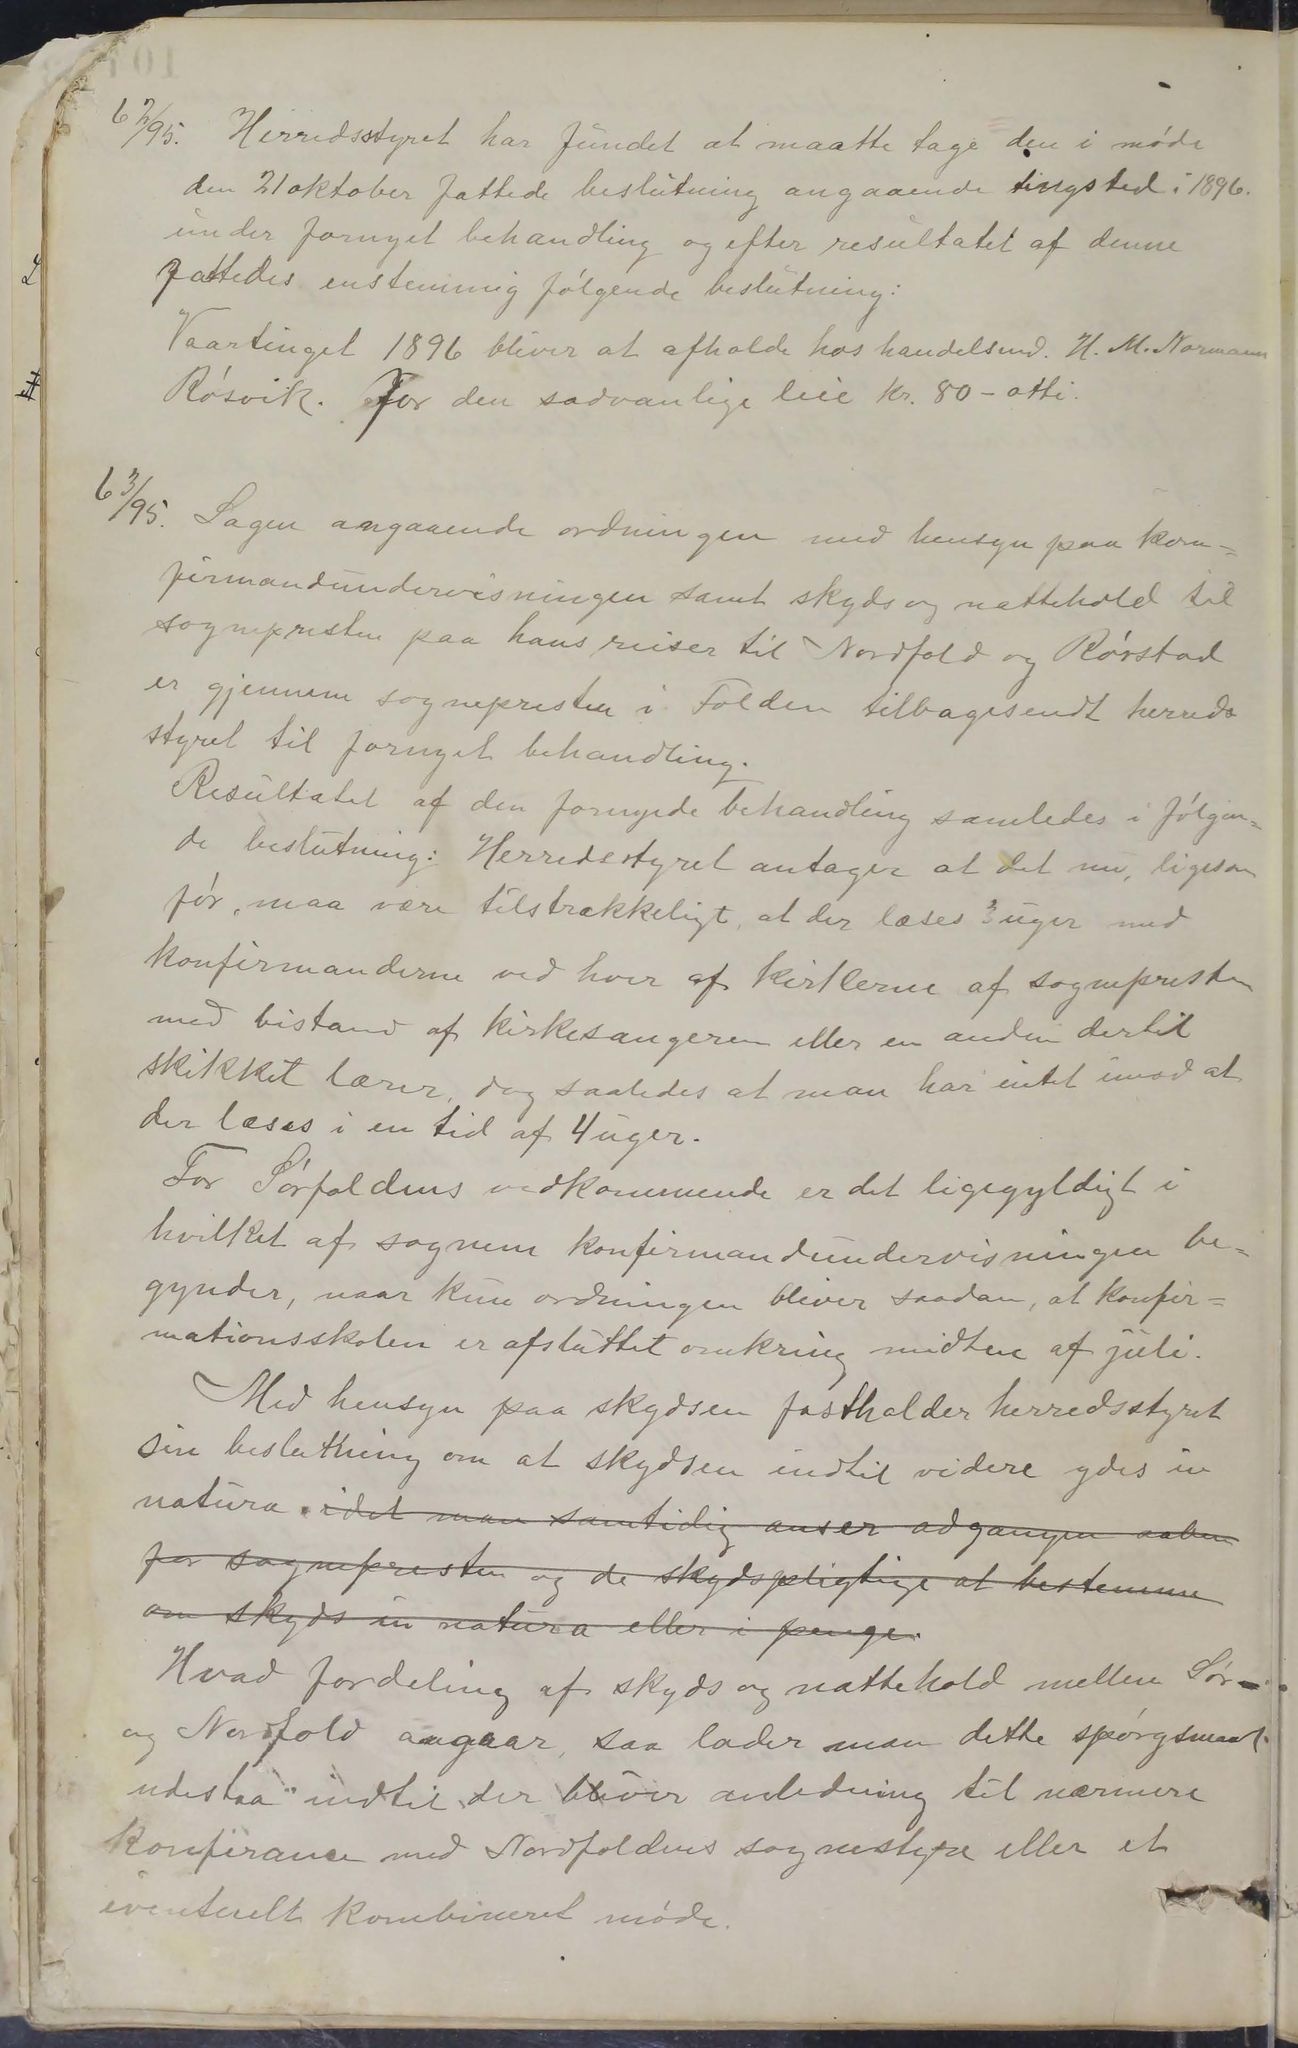 62/95. Herredsstyret har fundet at maatte tage den i møde
den 21 oktober fattede beslutning angaaende tingsted i 1896.
under fornyet behandling og efter resultatet af denne
fattedes enstemmig følgende beslutning:
Vaartinget 1896 bliver at afholde hos handelsmd. H. M. Normann
Røsvik. For den sædvanlige leie kr. 80 - otti.
63/95. Sagen angaaende ordningen med hensyn paa kon=
firmandundervisningen samt skyds og nattehold til
sognepresten paa hans reiser til Nordfold og Rørstad
er gjennem sognepresten i Folden tilbagesendt herreds
styret til fornyet behandling.
Resultatet af den fornyede behandling samledes i følgen=
de beslutning: Herredsstyret antager at det nu, ligesom
før, maa være tilstrækkeligt, at der læses 3 uger med
konfirmanderne ved hver af kirkerne af sognepresten
med bistand af kirkesangeren eller en anden dertil
skikket lærer, dog saaledes at man har intet imod at
der læses i en tid af 4 uger.
For Sørfoldens vedkommende er det ligegyldigt i
hvilket af sognene konfirmandundervisningen be=
gynder, naar kun ordningen bliver saadan, at konfir=
mationsskolen er afsluttet omkring midten af juli.
Med hensyn paa skydsen fastholder herredsstyret
sin beslutning om at skydsen indtil videre ydes in
natura. idet man samtidig anser adgangen aaben
for sognepresten og de skydspligtige at bestemme
om skyds in natura eller i penge.
Hvad fordeling af skyds og nattehold mellem Sør-
og Nordfold angaar, saa lader man dette spørgsmaal
udestaa indtil der bliver anledning til nærmere
konferance med Nordfoldens sognestyre eller et
eventuelt kombineret møde.